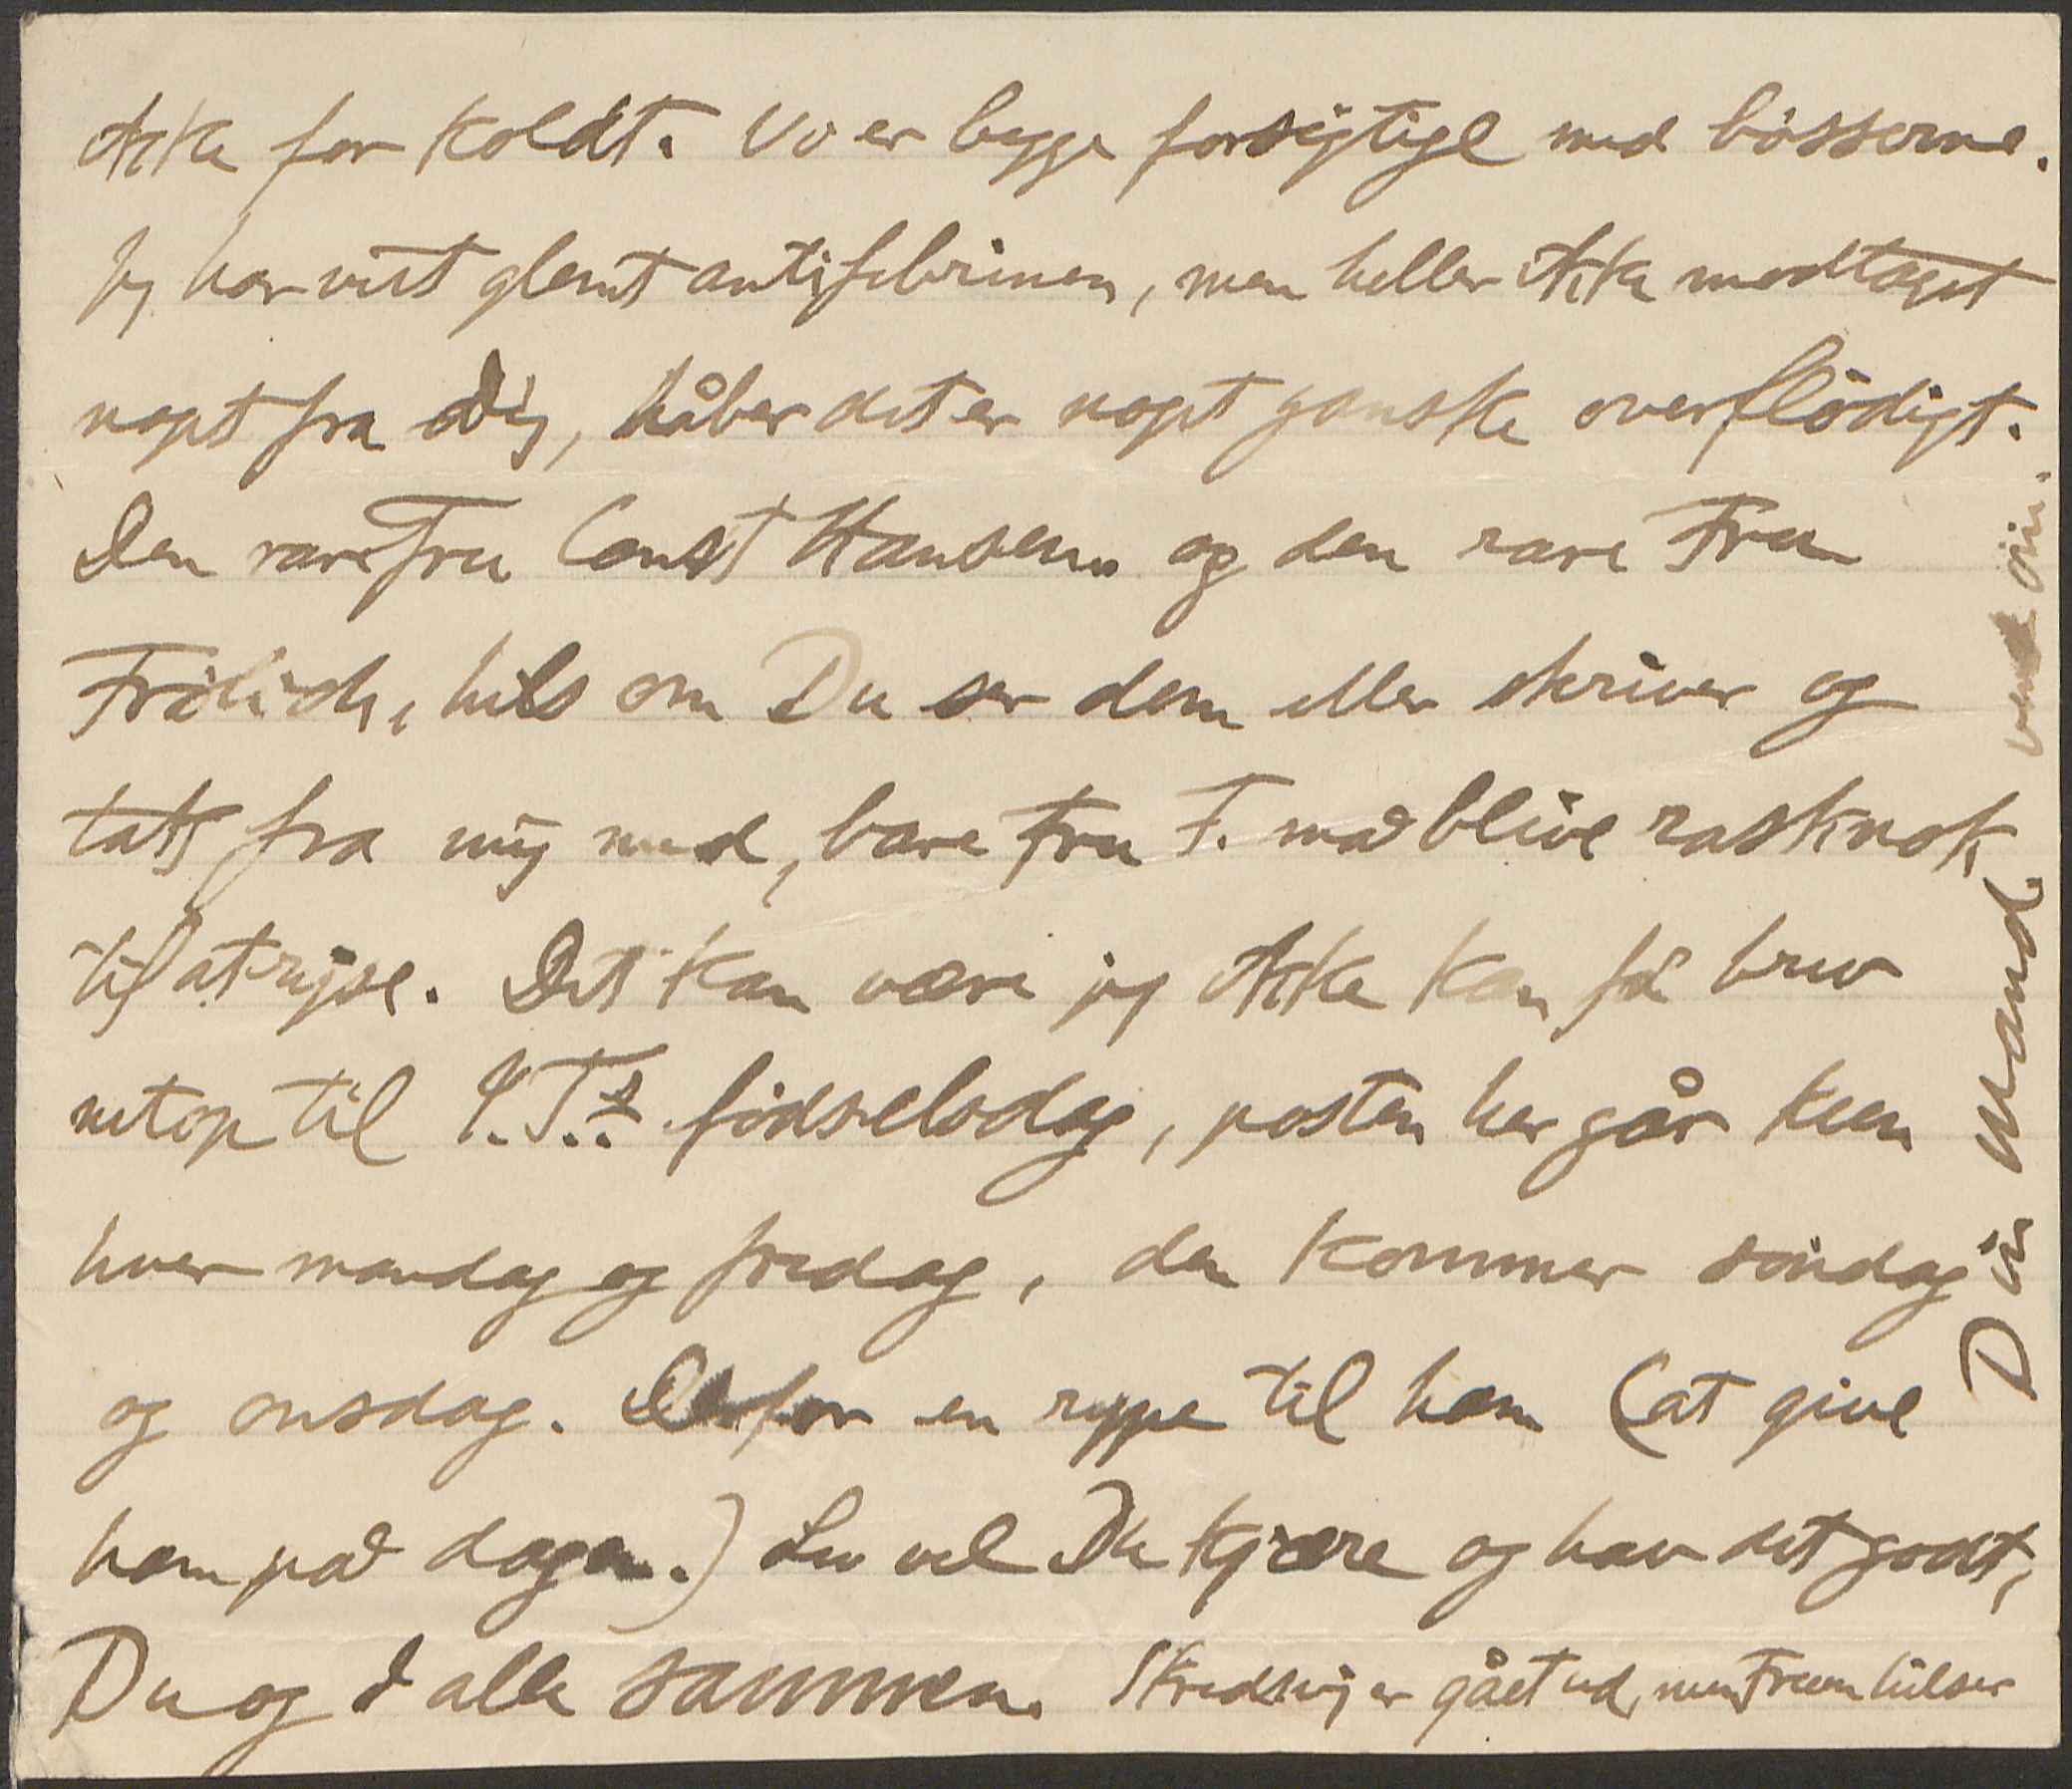 ikke for koldt. Vi er begge forsigtige med bösserne.
Jeg har vist glemt antifebrinen, men heller ikke modtaget
noget fra Dig, håber det er noget ganske overflödigt.
Den rare Fru Const Hansen og den rare Fru
Frölich, hils om Du ser dem eller skriver og
tak fra mig med, bare Fru F. må blive rask nok
til at rejse. Det kan være jeg ikke kan få brev
netop til födselsdag, posten her går kun
hver mandag og fredag, den kommer söndag
og onsdag. Derfor en rype til ham (at give
ham på dagen.) Lev vel Du kjære og hav det godt,
Du og I alle sammen. Skredsvig er gået ud, men Fruen hilser
Din Mand. vend om.